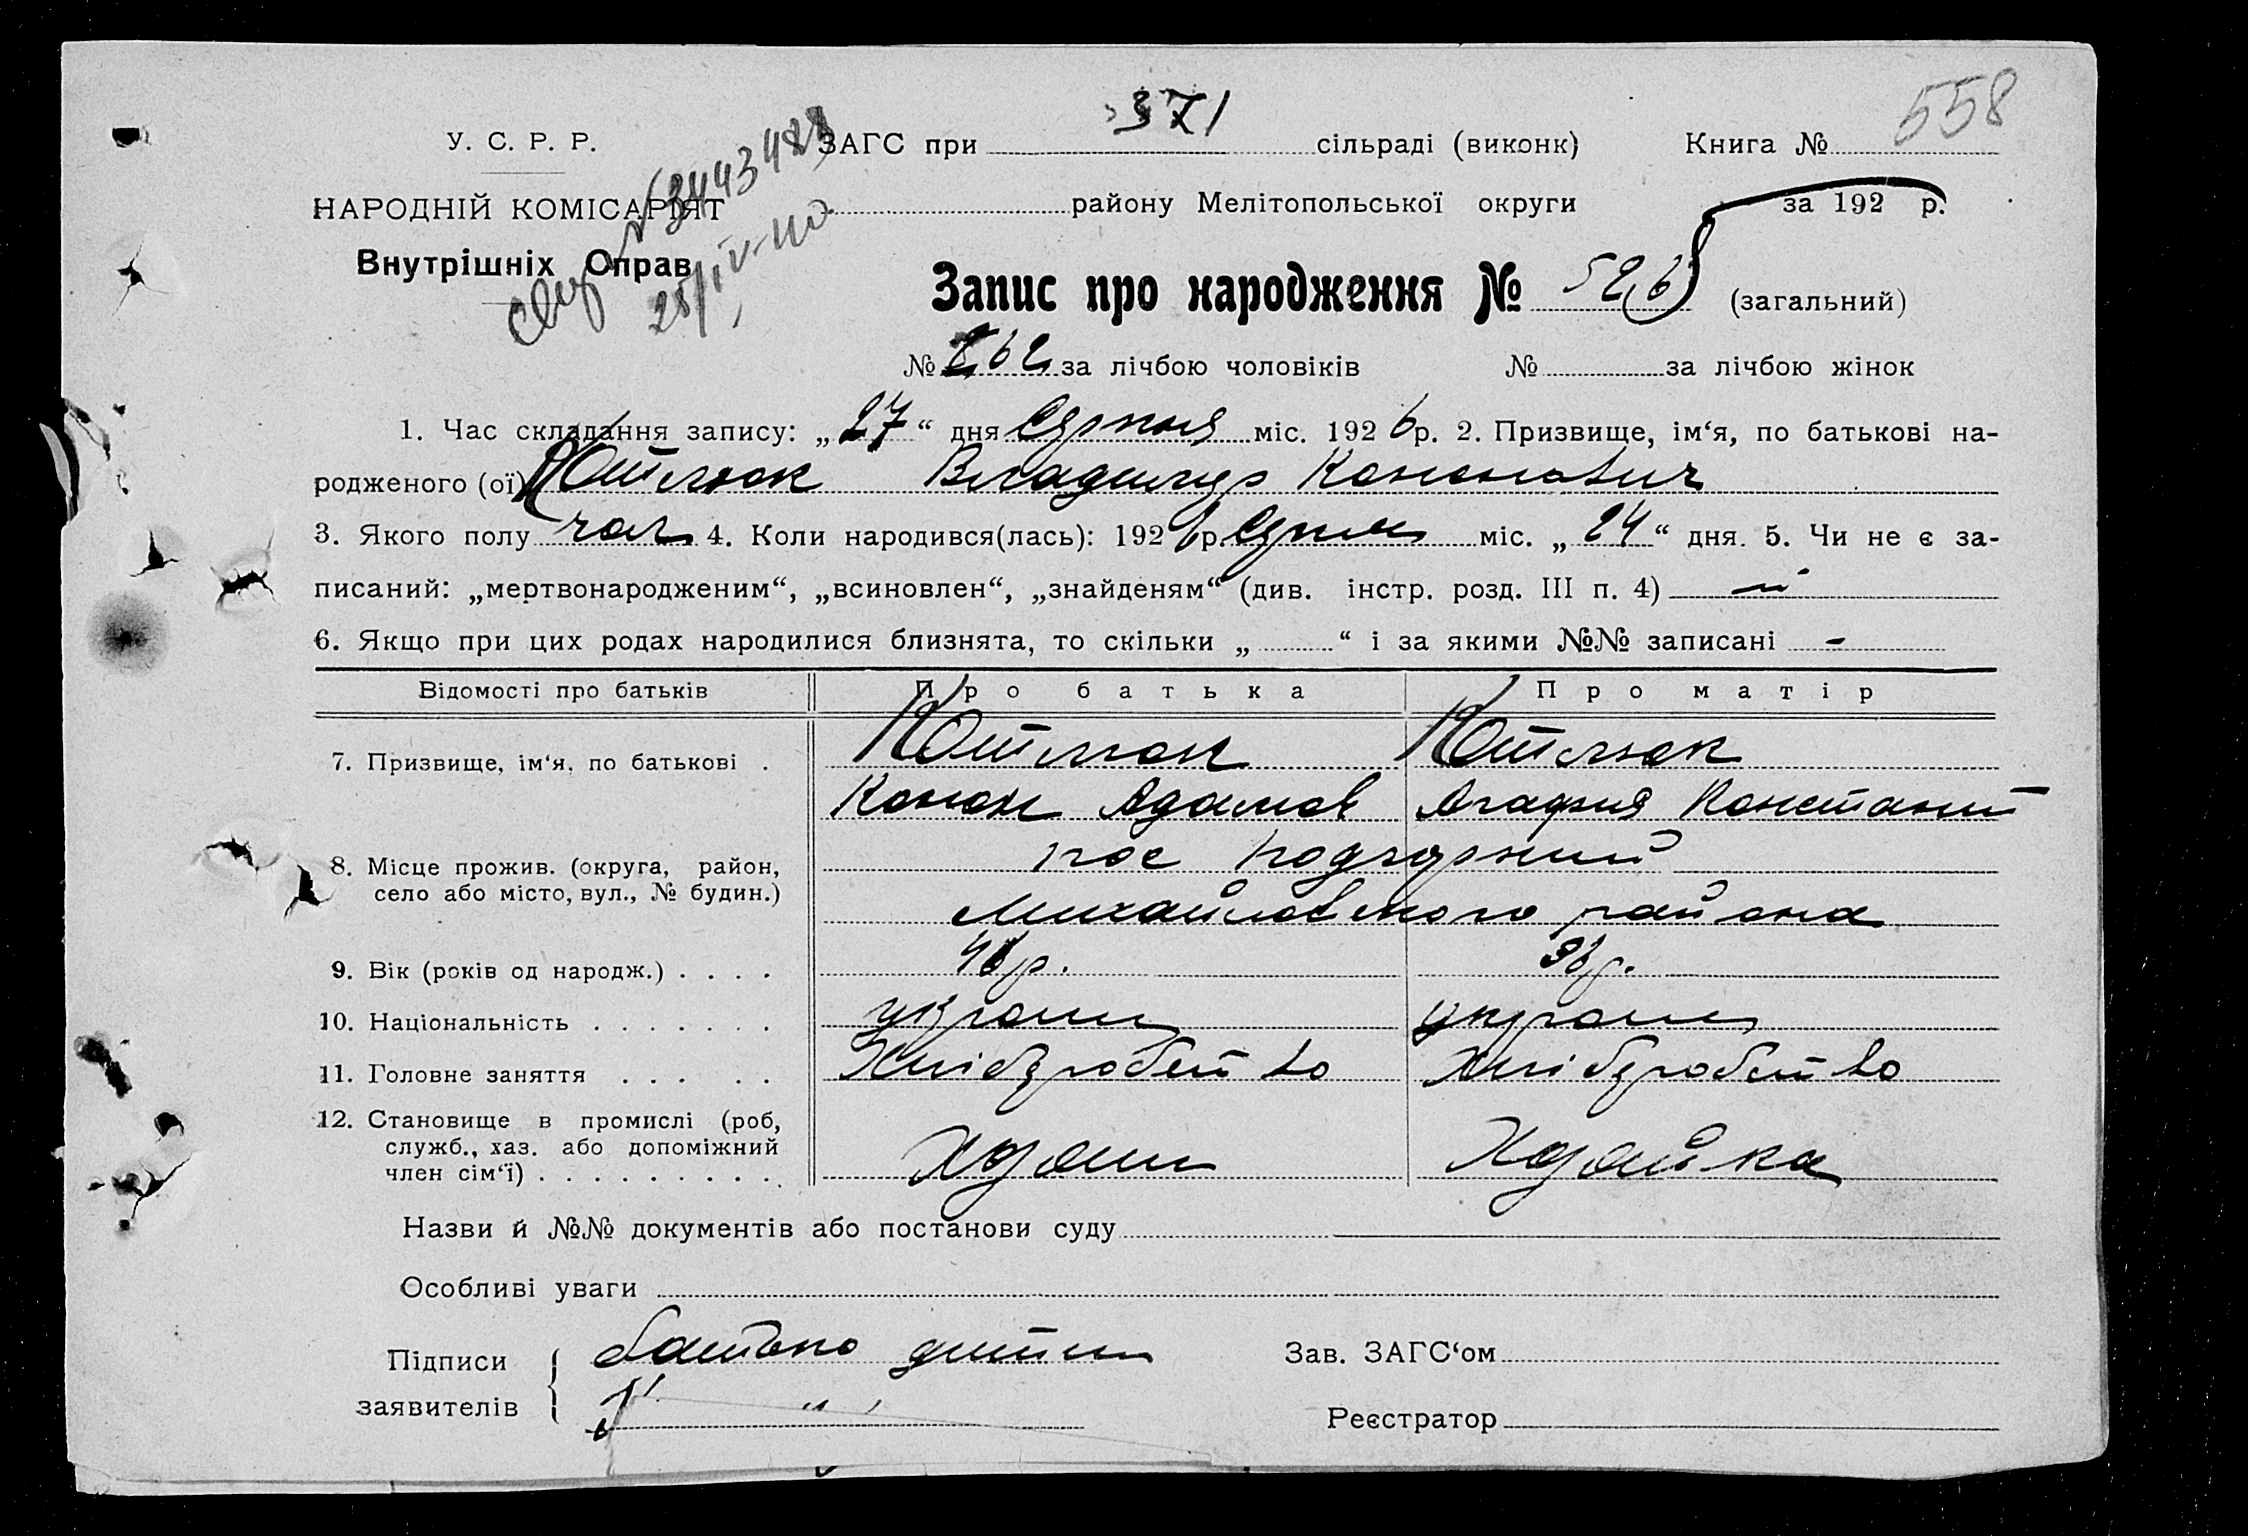 371
558
У. С. Р. Р.
ЗАГС при сільраді (виконк) Книга №
№ 3443428
НАРОДНІЙ КОМІСАРІЯТ
району Мелітопольської округи за 192 р.
Внутрішніх Справ
25/IV-40
Запис про народження № 526 (загальний)
№ 262 за лічбою чоловіків № за лічбою жінок
1. Час складання запису: „27“ дня Серпня міс. 1926 р. 2. Призвище, ім‘я, по батькові на-
родженого (ої) Ютилюк Владимир Кононович
3. Якого полу чол 4. Коли народився(лась): 1926 р. Серпня міс. „24“ дня. 5. Чи не є за-
писаний: „мертвонародженим“, „всиновлен“, „знайденям“ (див. інстр. розд. III п. 4) ні
6. Якщо при цих родах народилися близнята, то скільки „ “ і за якими №№ записані -
Відомості про батьків Про батька Про матір
7. Призвище, ім‘я, по батькові . Ютилюк Ютилюк
Конон Адамов Агафия Констант
8. Місце прожив. (округа, район, село або місто, вул., № будин.) пос Подгорний
Михайловского района
9. Вік (років од народж.) . . . . 46 р. 36 р.
10. Національність . . . . . . . україн україн
11. Головне заняття . . . . . Хлібробство Хлібробство
12. Становище в промислі (роб,
служб., хаз. або допоміжний
член сім‘ї) . . . . . . . . . . Хозяин Хозяйка
Назви й №№ документів або постанови суду
Особливі уваги
Підписи батько дитини Зав. ЗАГС‘ом
заявителів Реєстратор